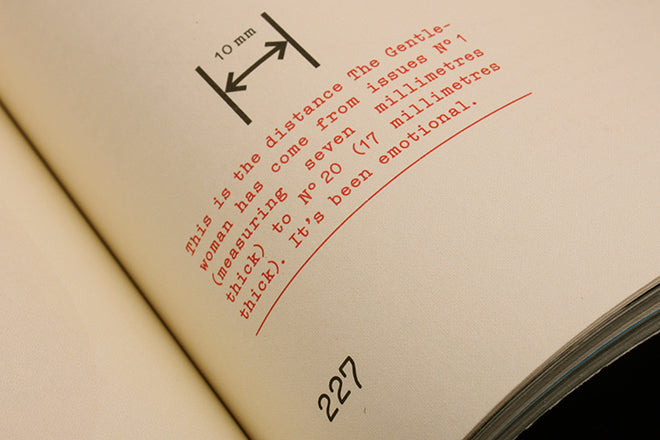 10 mm
This is the distance The Gentle-
woman has come from issues Nº 1
(measuring seven millimetres
thick) to Nº 20 (17 millimetres
thick). It's been emotional.
227